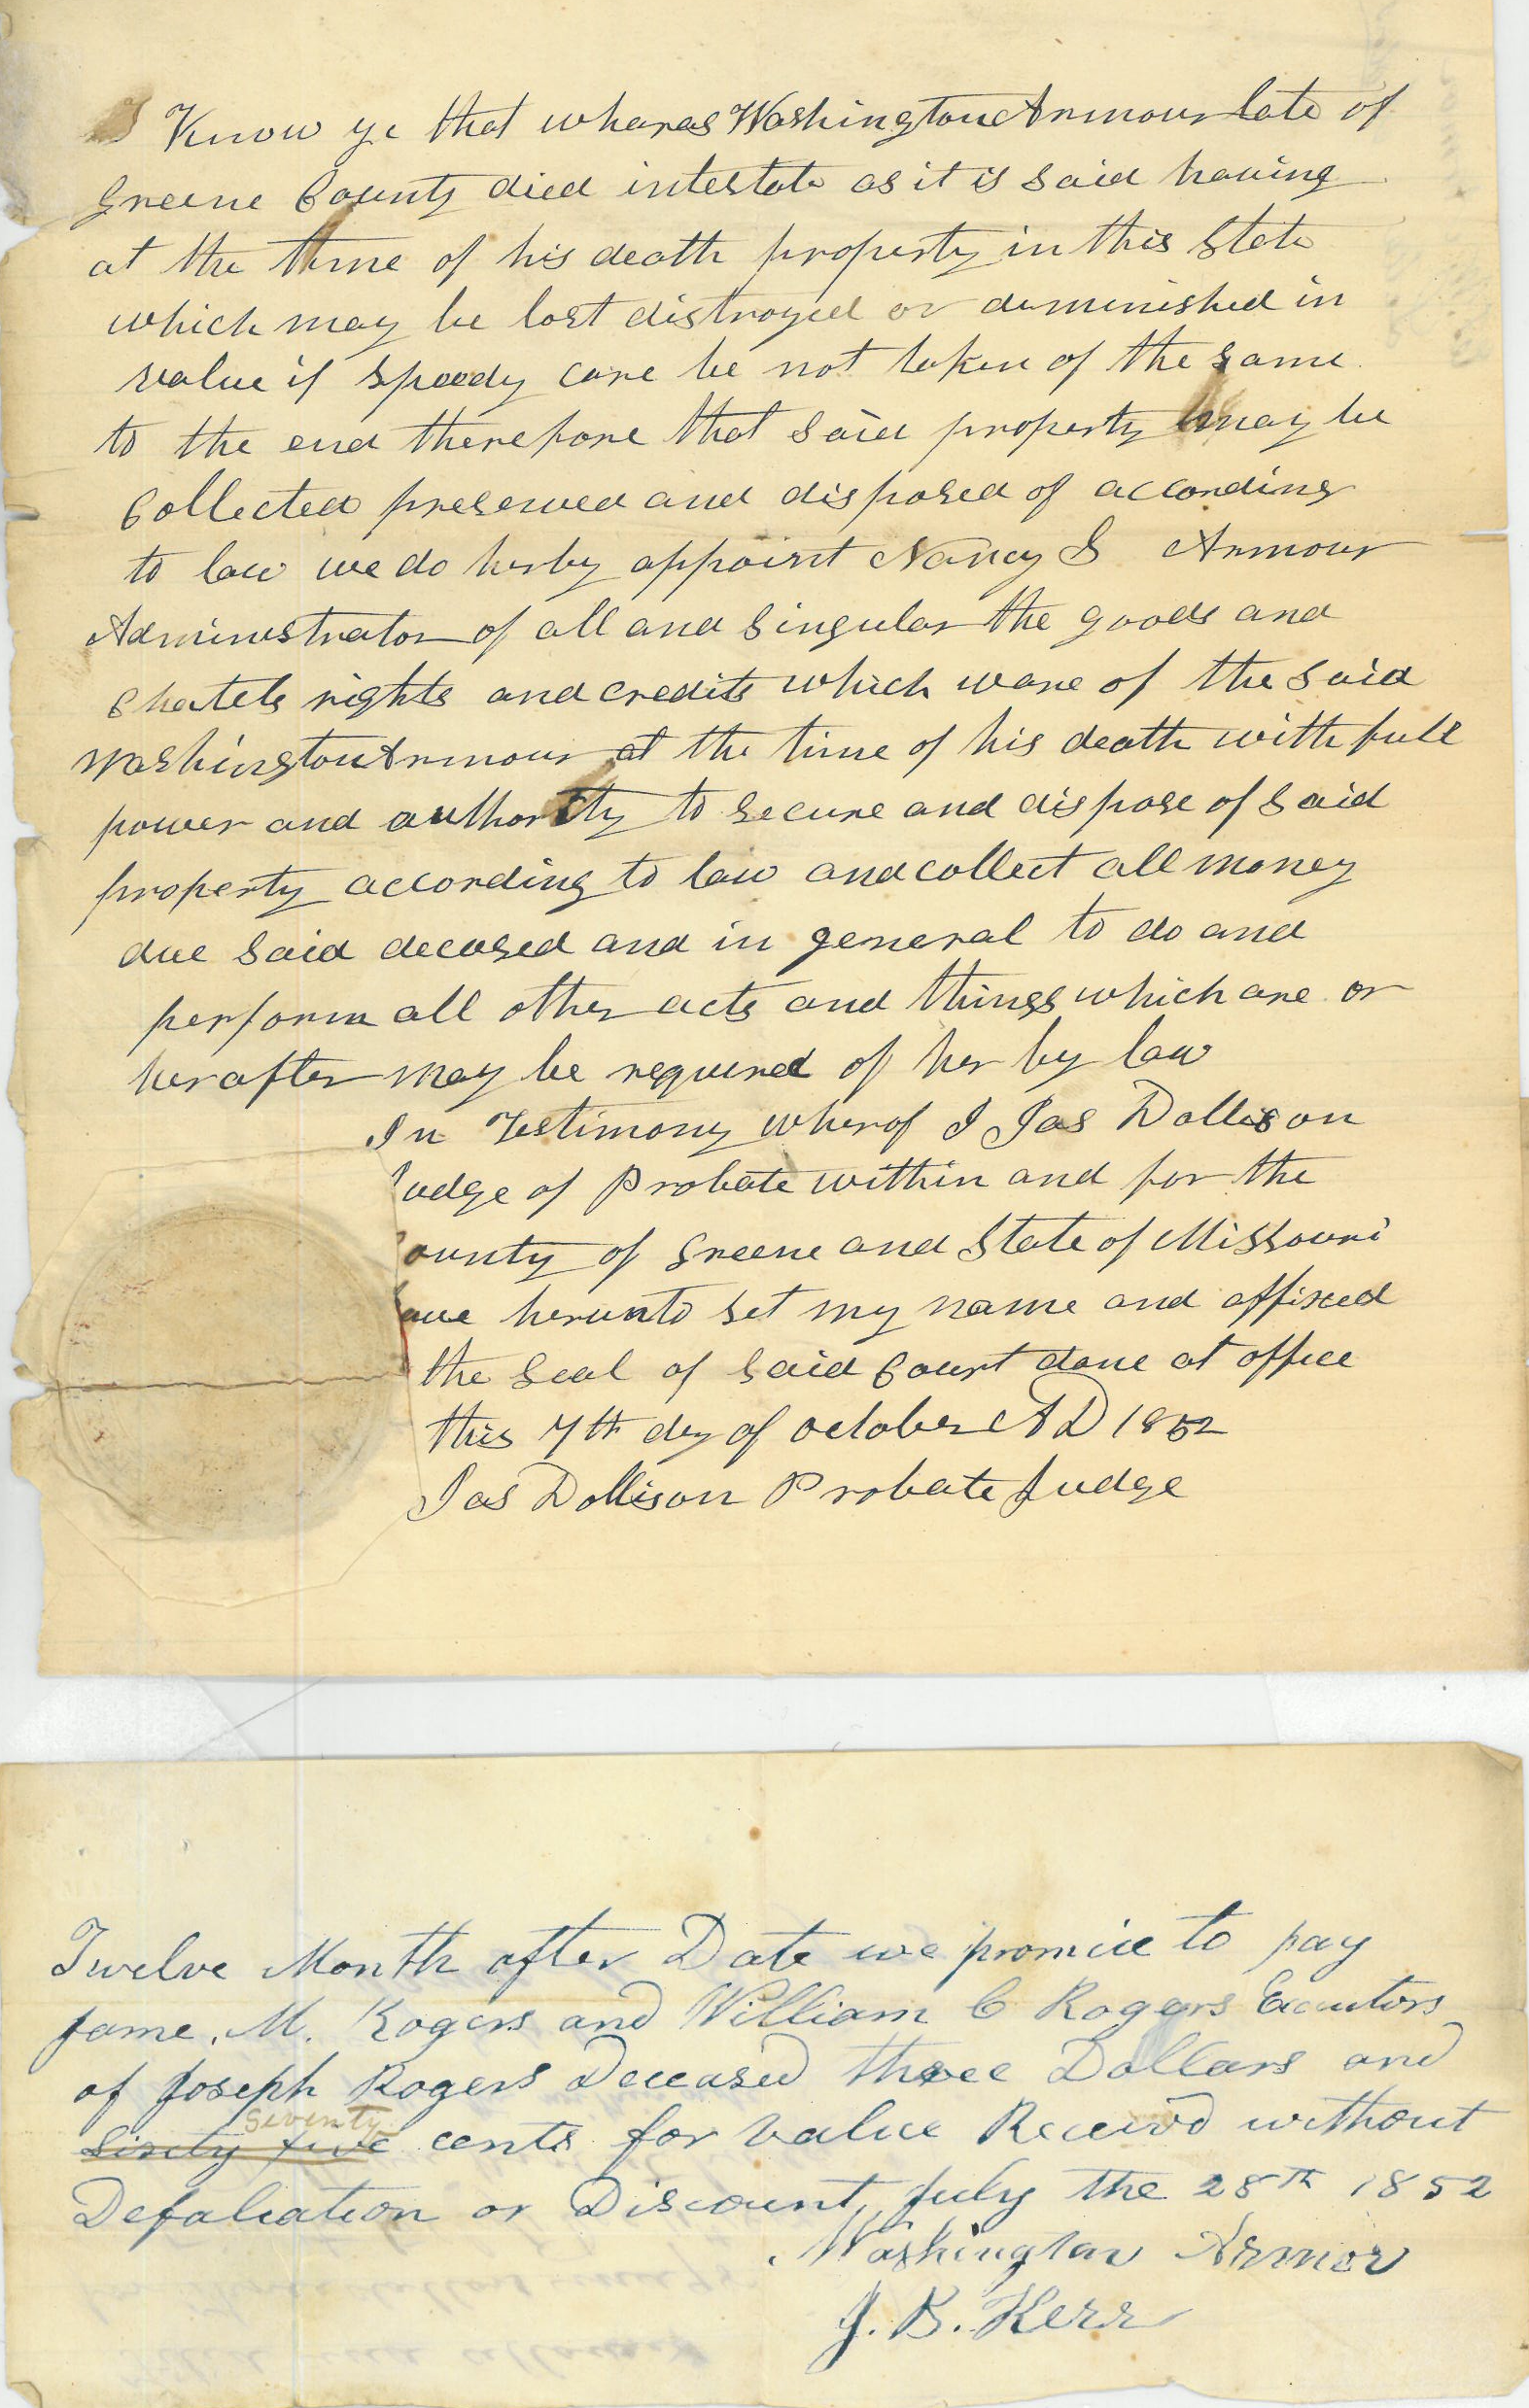 Know ye that wheras Washington Armour late of
Greene County died intestate as it is said having
at the time of his death property in this State
which may be lost distroyed or diminished in
value if speedy care be not taken of the same
to the end therefore that said property may be
Collected preserved and disposed of according
to law we do herby appoint Nancy S Armour
Administrator of all and singular the goods and
Chatels rights and credits which ware of the said
Washington Armour at the time of his death with full
power and authority to secure and dispose of said
property according to law and collect all money
due said decased and in general to do and
perform all other acts and things which are or
herafter may be required of her by law
In Testimony wherof I Jas Dollison
Judge of Probate within and for the
ounty of Greene and State of Missouri
ave herunto set my name and affixed
the seal of said Court done at office
this 7th day of october AD 1852
Jas Dollison Probate Judge
Twelve Month after Date we promise to pay
Jame. M. Rogers and William C Rogers Executors
of Joseph Rogers Deceased three Dollars and
seventy
Sixty five cents for value Receivd without
Defalcation or Discount, July the 28th 1852
Washington Armor
J. B. Kerr